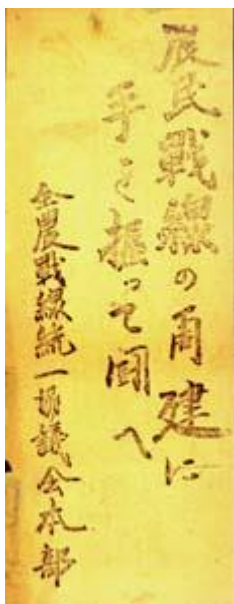 農民戦線の再建に
手を握って闘へ
全農戦線統一協議会本部